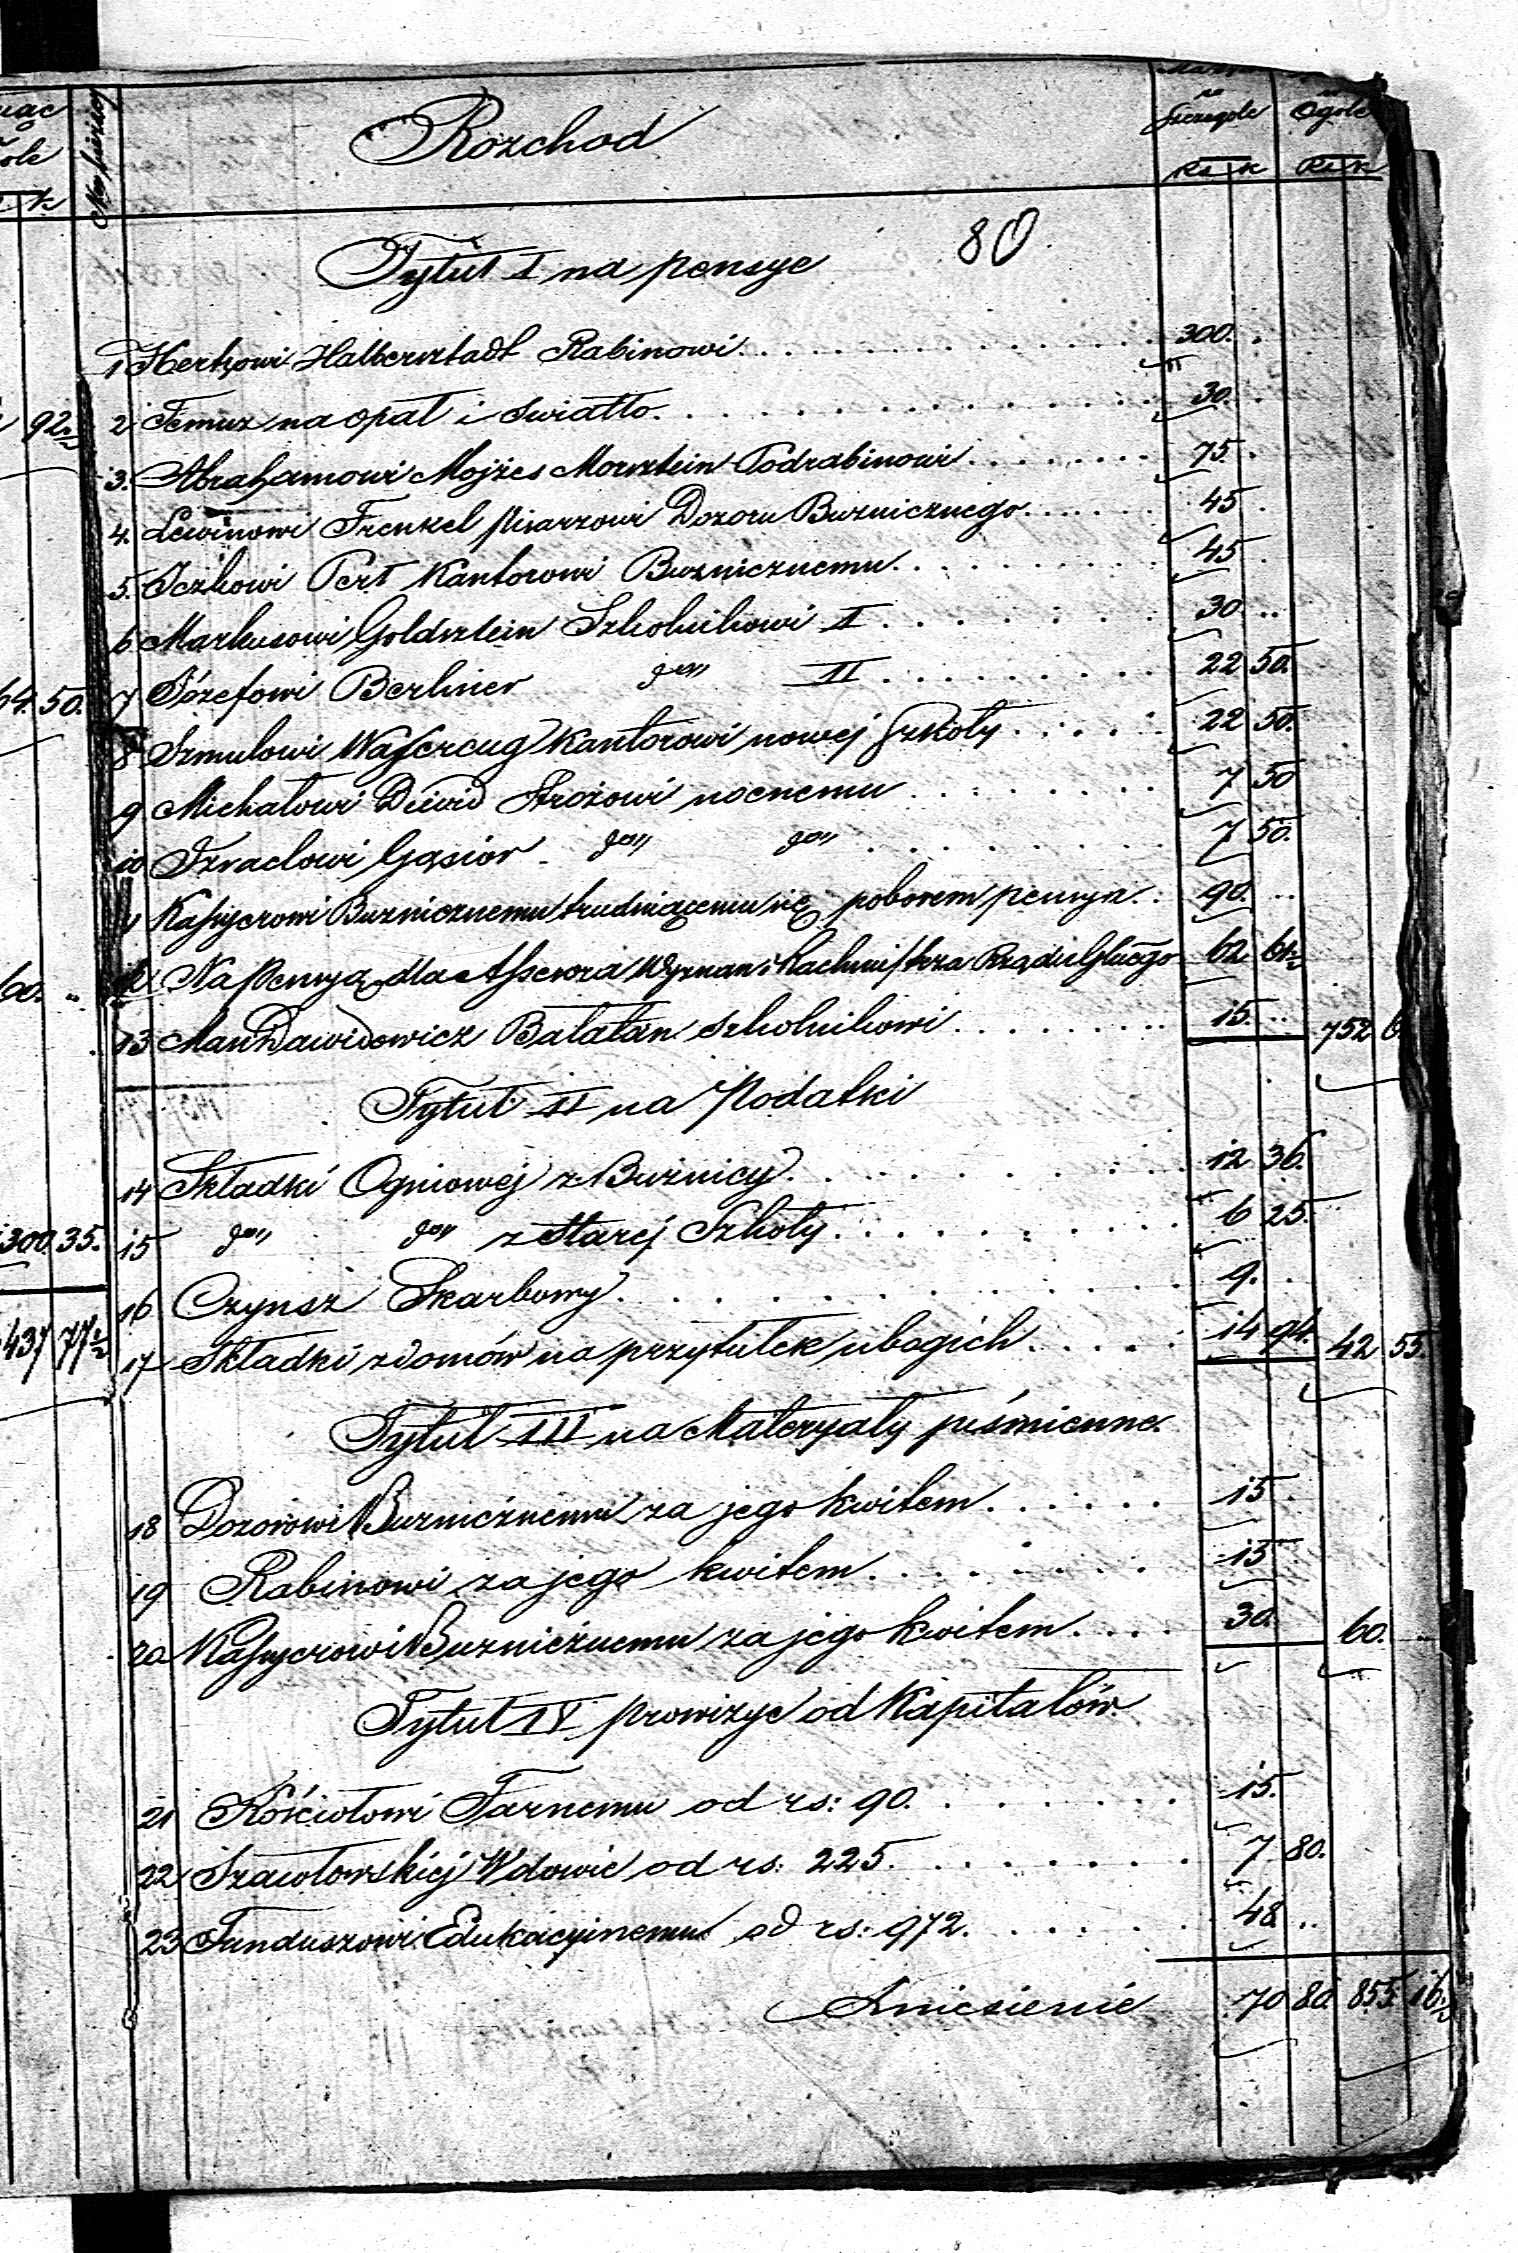 w Szczególe
w Ogóle
Rozchod
Rs k Rs k
80
Tytuł I na pensye
1 Hertzowi Halbersztadt Rabinowi 300
2 Temuz na opał i swiatło 30
3. Abrahamowi Mojżes Morsztein Podrabinowi 75
4. Lewinowi Frenkel pisarzowi Dozoru Buznicznego 45
5. Iczkowi Perl Kantorowi Buzniczuemu 45
6 Markusowi Goldsztein Szkolnikowi I 30
7 Józefowi Berliner do II 22 50.
8 Szmulowi Wassercug Kantorowi nowej Szkoły 22 50.
9 Michałowi Dawid Strożowi nocnemu 7 50
10 Izraelowi Gąsior do do 7 50.
11 Kassyerowi Buznicznemu trudniącemu się poborem 90.
12 Na Pensyą dla Assesora Wyznan i Rachmistrza Rządu Glnego 62 61½
13 Man Dawidowicz Bałatan Szkolnikowi 15. 752
Tytuł II na Podatki
14 Składki Ogniowej z Buźnicy 12 36.
15 do do z Starej Szkoły 6 25.
16 Czynsz Skarbowy 9.
17 Składki z domów na przytułek ubogich 14 94. 42 55.
Tytuł III na Materyały piśmienne.
18 Dozorowi Buzniczuemu za jego kwitem 15
19 Rabinowi za jego kwitem 15
20 Kassyerowi Buzniczuemu za jego kwitem 30. 60.
Tytuł IV prowizye od Kapitałów
21 Kościołowi Farnemu od rs: 90. 15.
22 Szawłowskiej Wdowie od rs: 225. 7 80.
23 Funduszowi Edukacyinemu od rs: 972. 48
Zniesienie 70 80. 855 16½
92½
64. 50.
60.
300 35.
437 77½